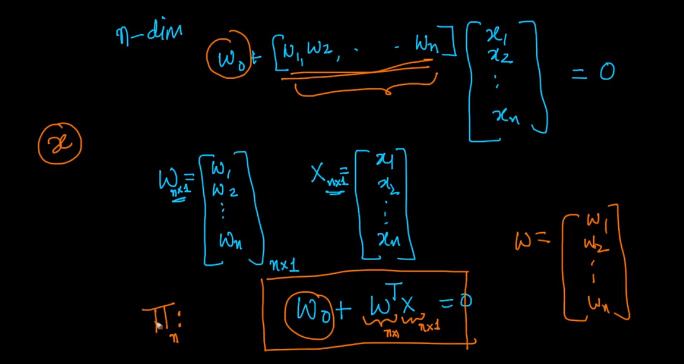 n-dim
w₀ + [w₁, w₂, . . wₙ] [x₁ x₂ ⋮ xₙ] = 0
x
Wₙₓ₁ = [w₁ w₂ ⋮ wₙ]ₙₓ₁ Xₙₓ₁ = [x₁ x₂ ⋮ xₙ]
w = [w₁ w₂ ⋮ wₙ]
πₙ: w₀ + wᵀx = 0
n×1 n×1